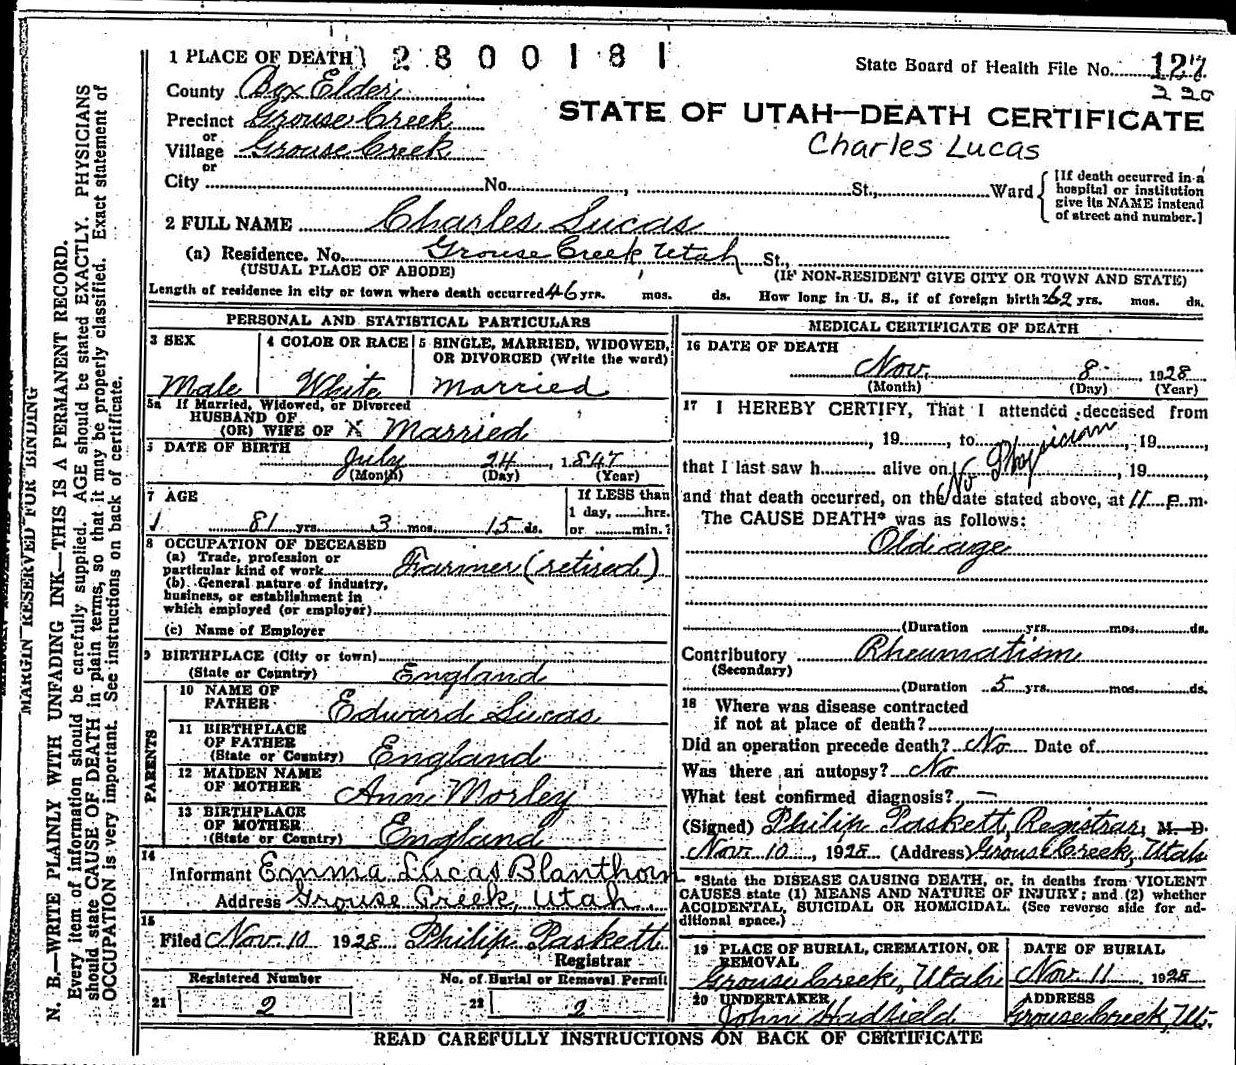 1 PLACE OF DEATH 2 8 0 0 1 8 1
State Board of Health File No. 127
220
County Box Elder
Precinct Grouse Creek
or
Village Grouse Creek
or
City No. , St., Ward
STATE OF UTAH—DEATH CERTIFICATE
Charles Lucas
[If death occurred in a
hospital or institution
give its NAME instead
of street and number.]
2 FULL NAME Charles Lucas
(a) Residence. No. Grouse Creek, Utah St.,
(USUAL PLACE OF ABODE) (IF NON-RESIDENT GIVE CITY OR TOWN AND STATE)
Length of residence in city or town where death occurred 46 yrs. mos. ds. How long in U. S., if of foreign birth? 62 yrs. mos. ds.
PERSONAL AND STATISTICAL PARTICULARS
3 SEX
Male
4 COLOR OR RACE
White
5 SINGLE, MARRIED, WIDOWED,
OR DIVORCED (Write the word)
Married
5a If Married, Widowed, or Divorced
HUSBAND OF
(OR) WIFE OF X Married
6 DATE OF BIRTH
July 24, 1847
(Month) (Day) (Year)
7 AGE
81 yrs. 3 mos. 15 ds.
If LESS than
1 day, hrs.
or min.?
8 OCCUPATION OF DECEASED
(a) Trade, profession or
particular kind of work Farmer (retired)
(b) General nature of industry,
business, or establishment in
which employed (or employer)
(c) Name of Employer
9 BIRTHPLACE (City or town)
(State or Country) England
PARENTS
10 NAME OF
FATHER Edward Lucas
11 BIRTHPLACE
OF FATHER
(State or Country) England
12 MAIDEN NAME
OF MOTHER Ann Morley
13 BIRTHPLACE
OF MOTHER
(State or Country) England
14
Informant Emma Lucas Blanthorn
Address Grouse Creek, Utah
15
Filed Nov. 10 1928 Philip Paskett
Registrar
Registered Number No. of Burial or Removal Permit
21 2 22 2
MEDICAL CERTIFICATE OF DEATH
16 DATE OF DEATH
Nov. 8 1928
(Month) (Day) (Year)
17 I HEREBY CERTIFY, That I attended deceased from
, 19 , to , 19 ,
No Physician
that I last saw h alive on , 19 ,
and that death occurred, on the date stated above, at 11 P.m.
The CAUSE DEATH* was as follows:
Old age
(Duration yrs. mos. ds.
Contributory Rheumatism
(Secondary)
(Duration 5 yrs. mos. ds.
18 Where was disease contracted
if not at place of death?
Did an operation precede death? No Date of
Was there an autopsy? No
What test confirmed diagnosis? —
(Signed) Philip Paskett, Registrar, M. D.
Nov. 10, 1928 (Address) Grouse Creek, Utah
*State the DISEASE CAUSING DEATH, or, in deaths from VIOLENT
CAUSES state (1) MEANS AND NATURE OF INJURY; and (2) whether
ACCIDENTAL, SUICIDAL OR HOMICIDAL. (See reverse side for ad-
ditional space.)
19 PLACE OF BURIAL, CREMATION, OR
REMOVAL
Grouse Creek, Utah
DATE OF BURIAL
Nov. 11 1928
20 UNDERTAKER
John Hadfield
ADDRESS
Grouse Creek, Ut.
READ CAREFULLY INSTRUCTIONS ON BACK OF CERTIFICATE
MARGIN RESERVED FOR BINDING
N. B.—WRITE PLAINLY WITH UNFADING INK—THIS IS A PERMANENT RECORD.
Every item of information should be carefully supplied. AGE should be stated EXACTLY. PHYSICIANS
should state CAUSE OF DEATH in plain terms, so that it may be properly classified. Exact statement of
OCCUPATION is very important. See instructions on back of certificate.